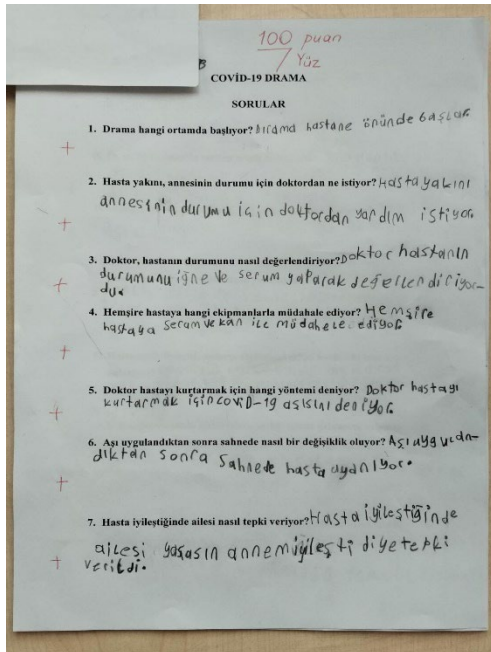 100 puan
Yüz
B
COVİD-19 DRAMA
SORULAR
1. Drama hangi ortamda başlıyor? Dırama hastane önünde başlar
2. Hasta yakını, annesinin durumu için doktordan ne istiyor? Hasta yakını
annesinin durumu için doktordan yardım istiyor.
3. Doktor, hastanın durumunu nasıl değerlendiriyor? Doktor hastanın
durumunu iğne ve serum yaparak değellendiriyor-
du.
4. Hemşire hastaya hangi ekipmanlarla müdahale ediyor? Hemşire
hastaya seram ve kan ile müdahele ediyor.
5. Doktor hastayı kurtarmak için hangi yöntemi deniyor? Doktor hastayı
kurtarmak için covid-19 aşısını deniyor.
6. Aşı uygulandıktan sonra sahnede nasıl bir değişiklik oluyor? Aşı uygulan-
dıktan sonra sahnede hasta uyanıyor.
7. Hasta iyileştiğinde ailesi nasıl tepki veriyor? Hasta iyileştiğinde
ailesi yaşasın annem iyileşti diye tepki